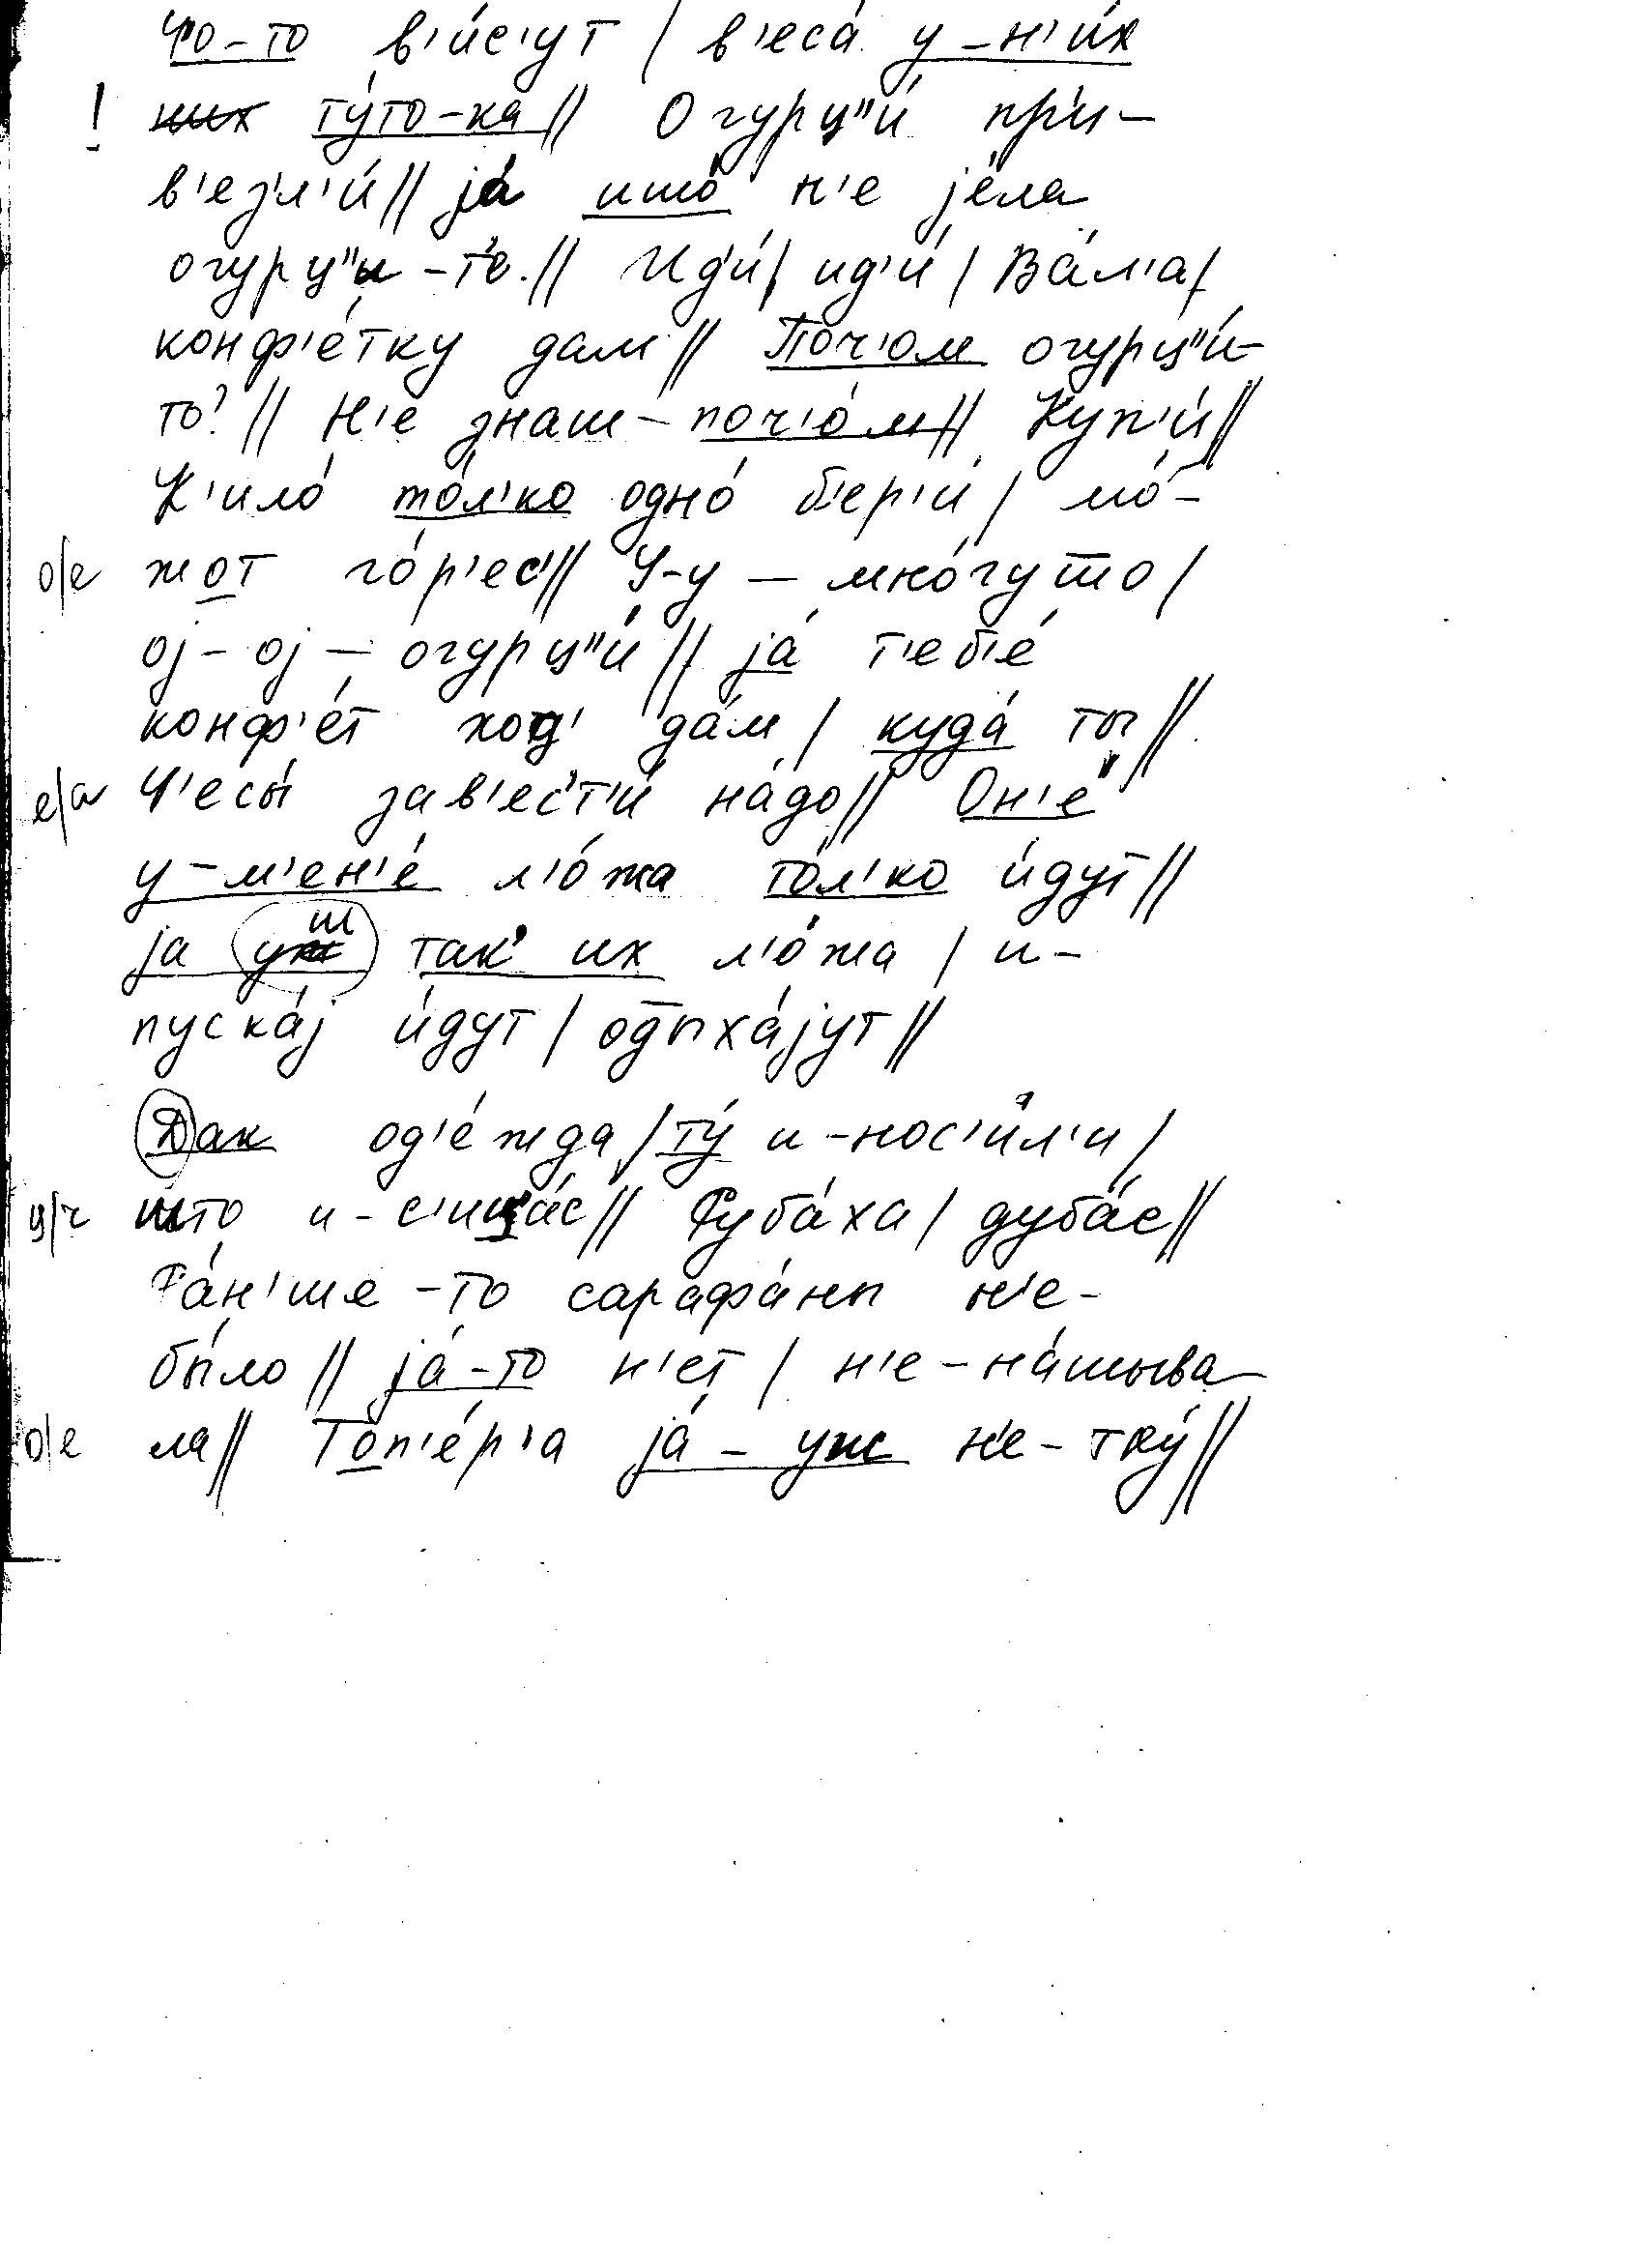 Чо-то в'и́с'ут / в'еса́ у-н'и́х
! них ту́то-ка // Огурц"и́ пр'и-
в'ез'л'и́ // jа́ ишо́ н'е jе́ла
огурц"и-те. // Ид'и́ / ид'и́ / Ва́л'а /
конф'е́тку дам // Поч'о́м огурц"и́-
то? // Н'е знаш - поч'о́м // Куп'и́ //
К'ило́ то́л'ко одно́ б'ер'и́ / мо́-
о/е жот го́р'ес' // У-у — мно́гу то /
оj-оj — огурц"и́ // jа́ т'еб'е́
конф'е́т ход' да́м / куда́ ты //
е/а Ч'есы́ зав'ес'т'и́ на́до // Он'е́
у-м'ен'е́ л'о́жа то́л'ко и́дут //
jа уш так их л'о́жа / и-
пуска́j и́дут / одыха́jут //
Дак од'е́жда / ту́ и-нос'и́л'и /
ц/ч што и-с'ица́с // Руба́ха / дуба́с //
Ра́н'ше-то сарафа́ны н'е-
бы́ло // jа́-то н'ет / н'е-на́шыва
о/е ла // Топ'е́р'а jа́-уж н'е-тку́ //